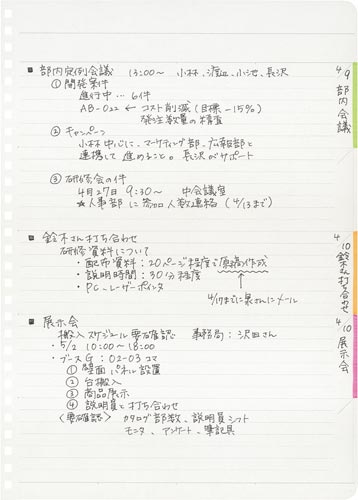 ■ 部内定例会議 13:00〜 小林、渡辺、小池、長沢
① 開発案件
進行中…6件
AB-022 ← コスト削減(目標-15%)
発注数量の精査
② キャンペーン
小林中心に、マーケティング部、広報部と
連携して進めること。長沢がサポート
③ 研修会の件
4月27日 9:30〜 中会議室
★人事部に参加人数連絡(4/13まで)
4/9 部内会議
■ 鈴木さん打ち合わせ
研修資料について
・配布資料:20ページ程度で原稿作成
・説明時間:30分程度
・PC、レーザーポインタ
4/17までに泉さんにメール
4/10 鈴木さん打ち合わせ
■ 展示会
搬入スケジュール要確認 事務局:沢田さん
・5/2 10:00〜18:00
・ブースG:02-03コマ
① 壁面パネル設置
② 台搬入
③ 商品展示
④ 説明員と打ち合わせ
〈要確認〉 カタログ部数、説明員シフト
モニタ、アンケート、筆記具
4/10 展示会